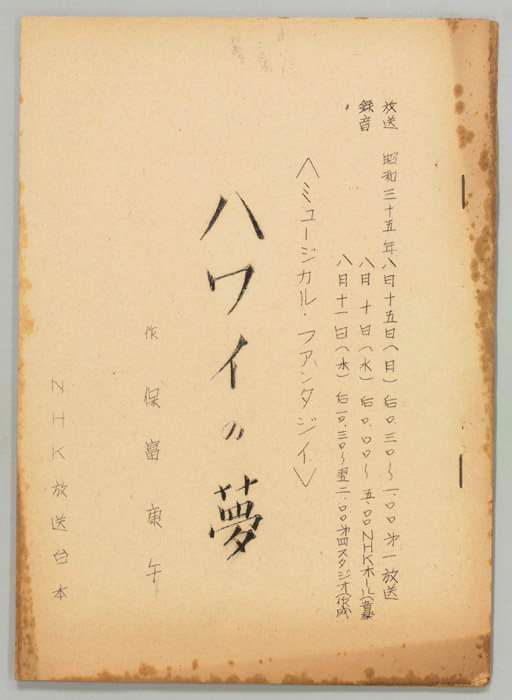 放送 昭和三十五年八月十五日(日)后0.30〜1.00第一放送
録音 八月十日(水)后0.00〜五.00NHKホール(音楽
八月十一日(水)后一0.30〜翌二.00第四スタジオ(作成
〈ミュージカル・ファンタジイ〉
ハワイの夢
作 保富康午
NHK放送台本